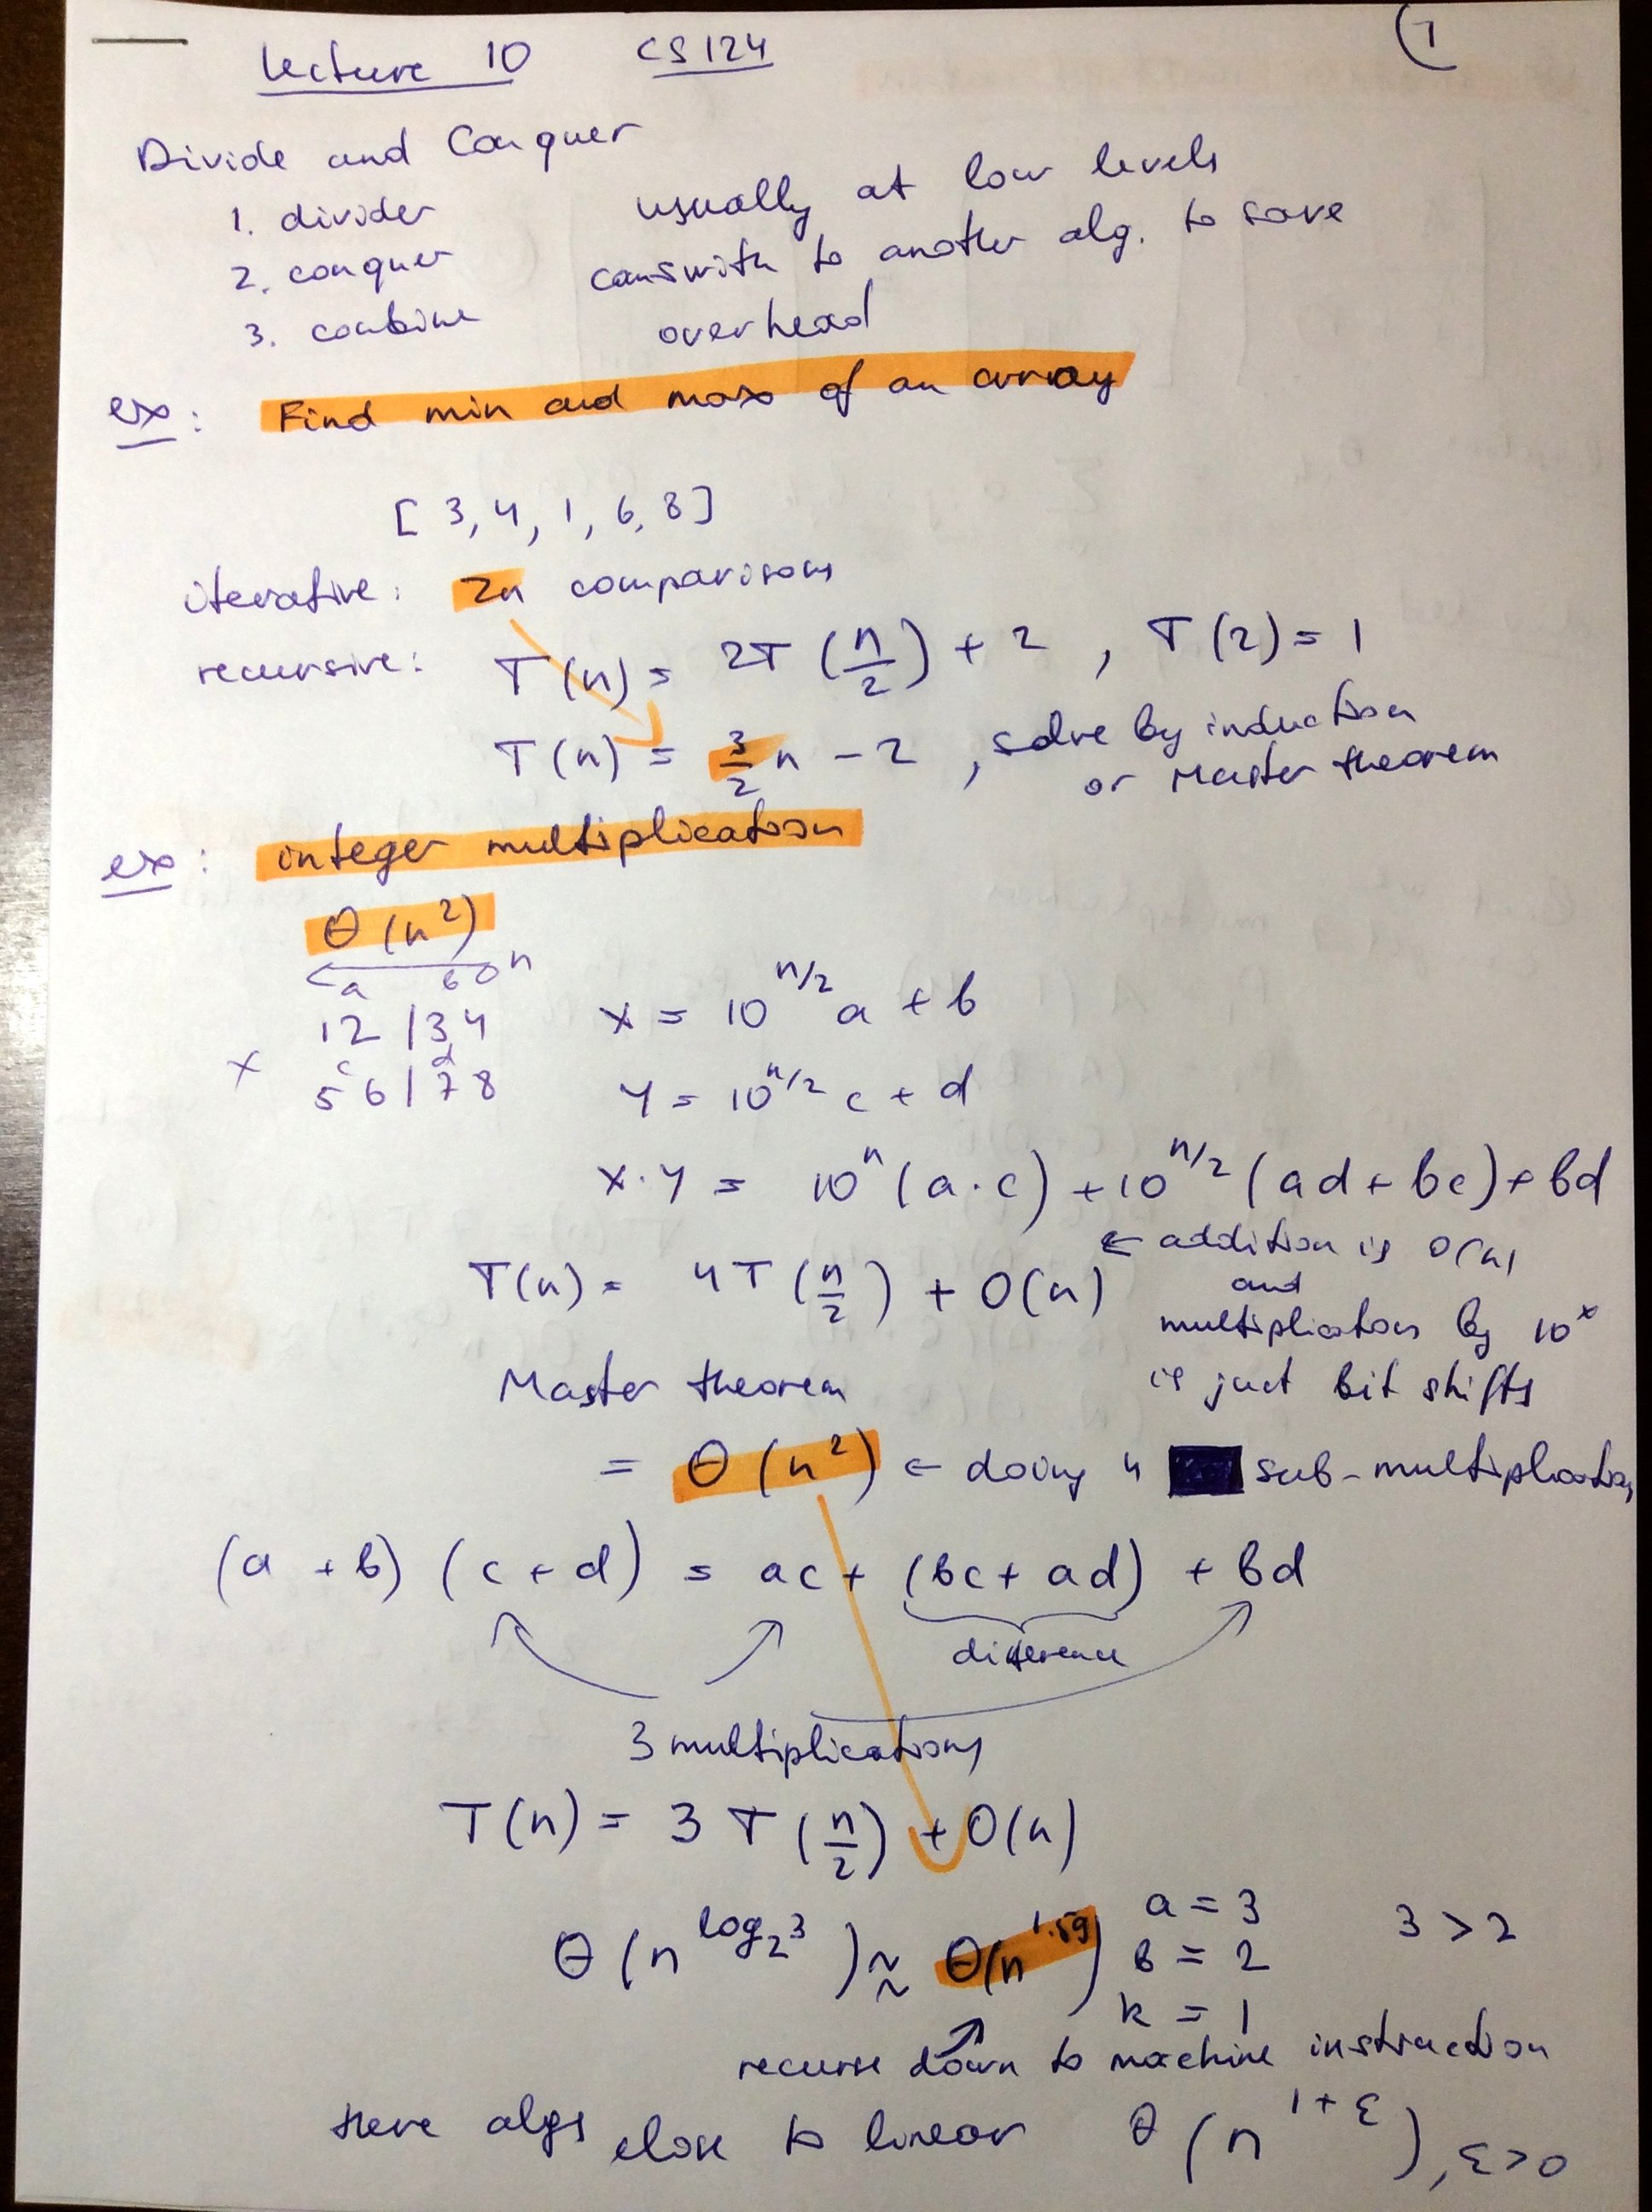 Lecture 10 CS 124 (1
Divide and Conquer
1. divider usually at low levels
2. conquer can switch to another alg. to save
3. combine overhead
ex: Find min and max of an array
[ 3, 4, 1, 6, 8 ]
iterative: 2n comparisons
recursive: T(n) = 2T (n/2) + 2 , T(2) = 1
T(n) = 3/2 n - 2 , solve by induction
or Master theorem
ex: integer multiplication
θ (n²)
a b n
12 | 34 x = 10^(n/2) a + b
c d
x 56 | 78 y = 10^(n/2) c + d
x·y = 10^n (a·c) + 10^(n/2) (ad + bc) + bd
← addition is O(n)
T(n) = 4T (n/2) + O(n) and
multiplications by 10^x
Master theorem is just bit shifts
= θ (n²) ← doing 4 sub-multiplications
(a + b) (c + d) = ac + (bc + ad) + bd
difference
3 multiplications
T(n) = 3 T (n/2) + O(n)
θ (n^(log₂ 3)) ≈ θ(n^1.59) a = 3 3 > 2
b = 2
k = 1
recurse down to machine instruction
there algs close to linear θ (n^(1+ε)), ε>0